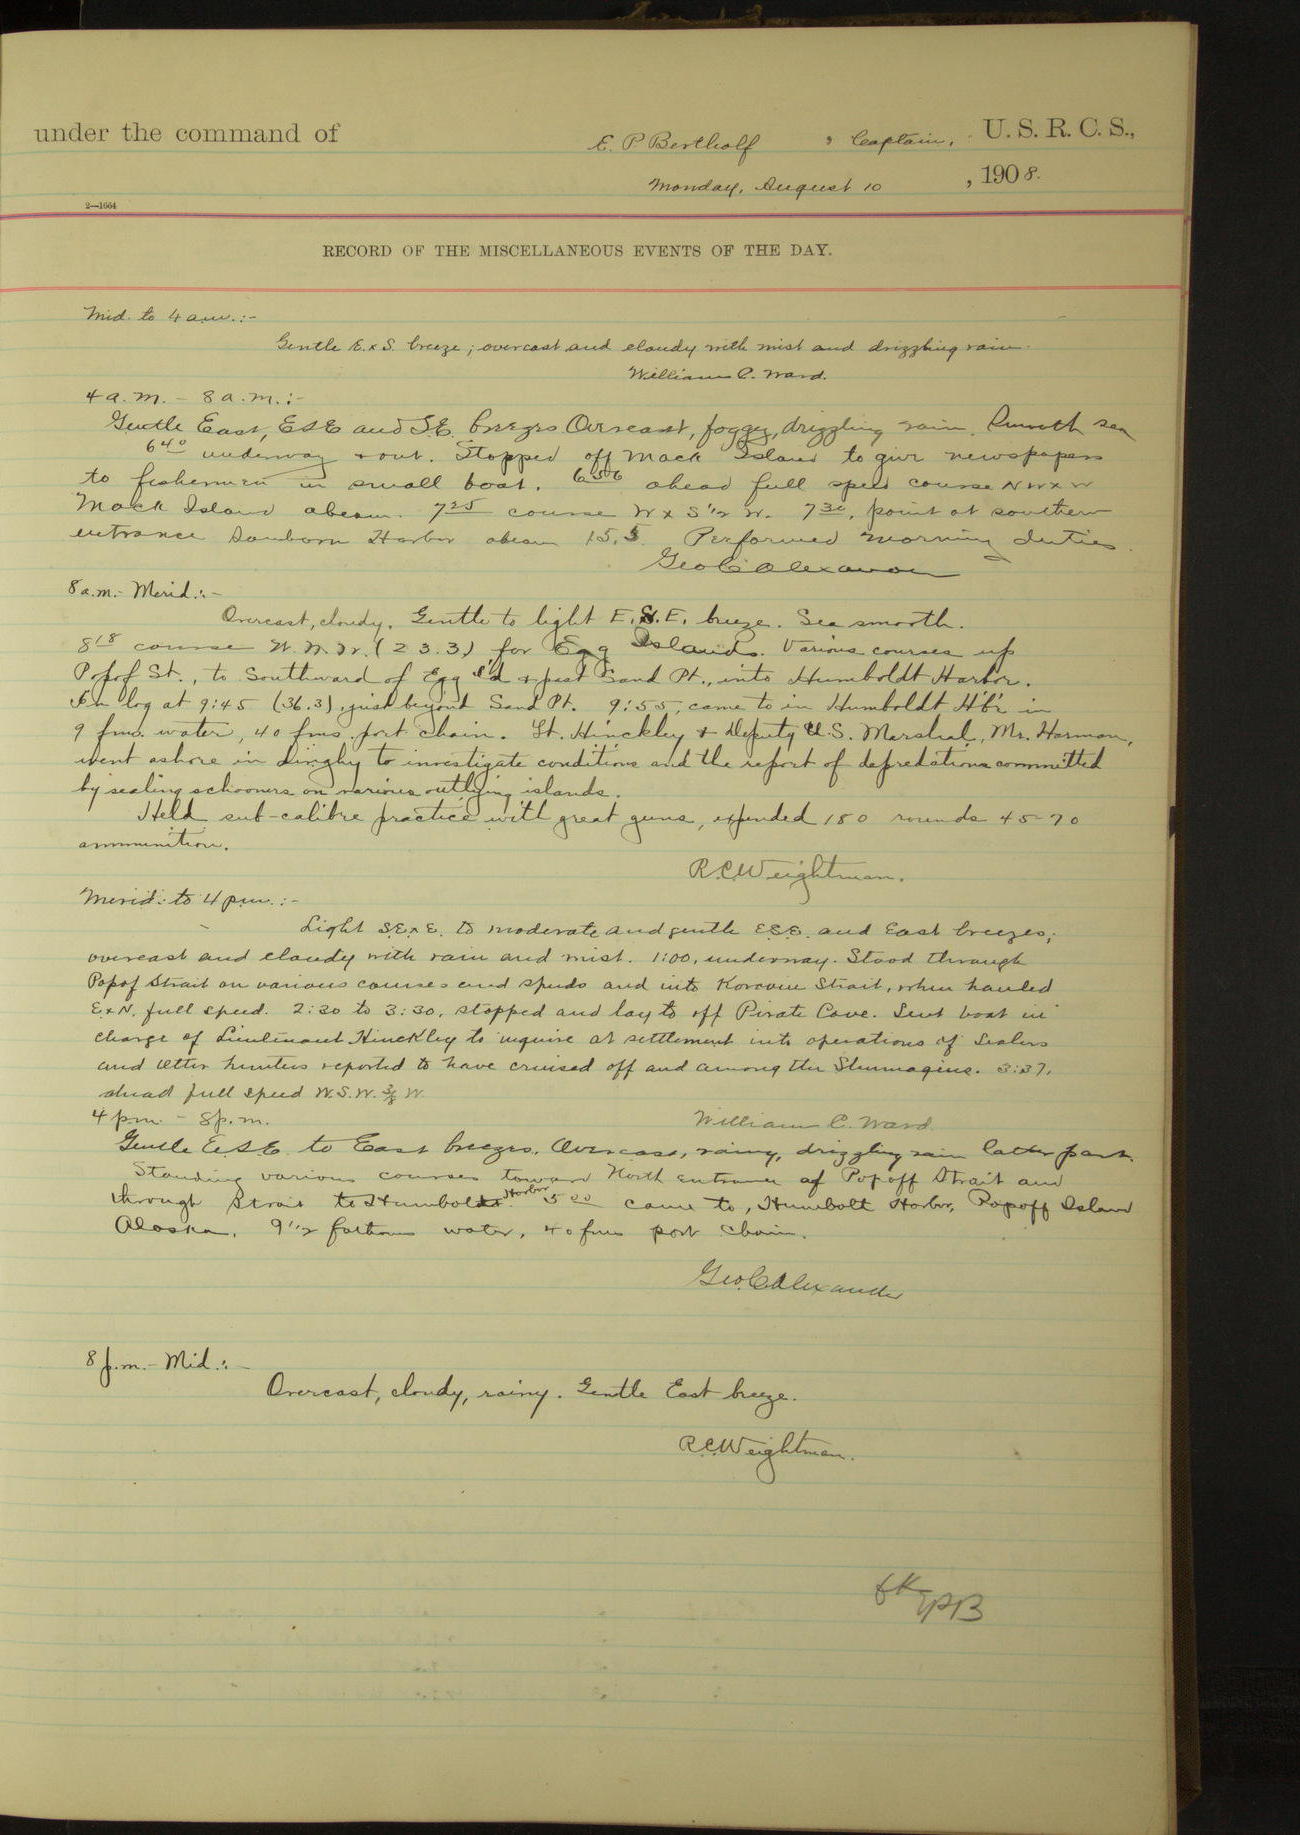 under the command of E. P. Bertholf, Captain, U. S. R. C. S.,
Monday, August 10, 1908.
2—1664
RECORD OF THE MISCELLANEOUS EVENTS OF THE DAY.
Mid. to 4 a.m.:-
Gentle E.x S. breeze; overcast and cloudy with mist and drizzling rain.
William C. Ward.
4 a.m. - 8 a.m.:-
Gentle East, ESE and S.E. breezes Overcast, foggy, drizzling rain. Smooth sea
6 40 underway & out. Stopped off Mack Island to give newspapers
to fishermen in small boat. 6 56 ahead full speed course NWxW
Mack Island abeam. 7 25 course W x S 1/2 W. 7 30, point at southern
entrance Sanborn Harbor abeam 15.5. Performed morning duties.
Geo C Alexander
8 a.m.- Merid.:-
Overcast, cloudy. Gentle to light E.S.E. breeze. Sea smooth.
8 18 course W.N.W. (23.3) for Egg Islands. Various courses up
Popof St., to Southward of Egg I'd & past Sand Pt., into Humboldt Harbor.
In log at 9:45 (36.3), just beyond Sand Pt. 9:55, came to in Humboldt H'b'r in
9 fms. water, 40 fms. port chain. Lt. Hinckley & Deputy U.S. Marshal, Mr. Harmon,
went ashore in dinghy to investigate conditions and the report of depredations committed
by sealing schooners on various outlying islands.
Held sub-calibre practice with great guns, expended 180 rounds 45-70
ammunition.
R.C. Weightman.
Merid. to 4 p.m.:-
Light S.E.x E. to moderate and gentle E.S.E. and East breezes;
overcast and cloudy with rain and mist. 1:00, underway. Stood through
Popof Strait on various courses and speeds and into Korovin Strait, when hauled
E.x N. full speed. 2:30 to 3:30, stopped and lay to off Pirate Cove. Sent boat in
charge of Lieutenant Hinckley to inquire at settlement into operations of Sealers
and otter hunters reported to have cruised off and among the Shumagins. 3:37,
ahead full speed W.S.W. 3/8 W.
4 p.m. - 8 p.m.
William C. Ward.
Gentle E.S.E. to East breezes. Overcast, rainy, drizzling rain latter part.
Standing various courses toward North entrance of Popoff Strait and
through Strait to Humboldt Harbor 5 00 came to, Humbolt Harbor, Popoff Island
Alaska. 9 1/2 fathoms water, 40 fms port chain.
Geo. C Alexander
8 p.m.- Mid.:-
Overcast, cloudy, rainy. Gentle East breeze.
R.C. Weightman.
EPB